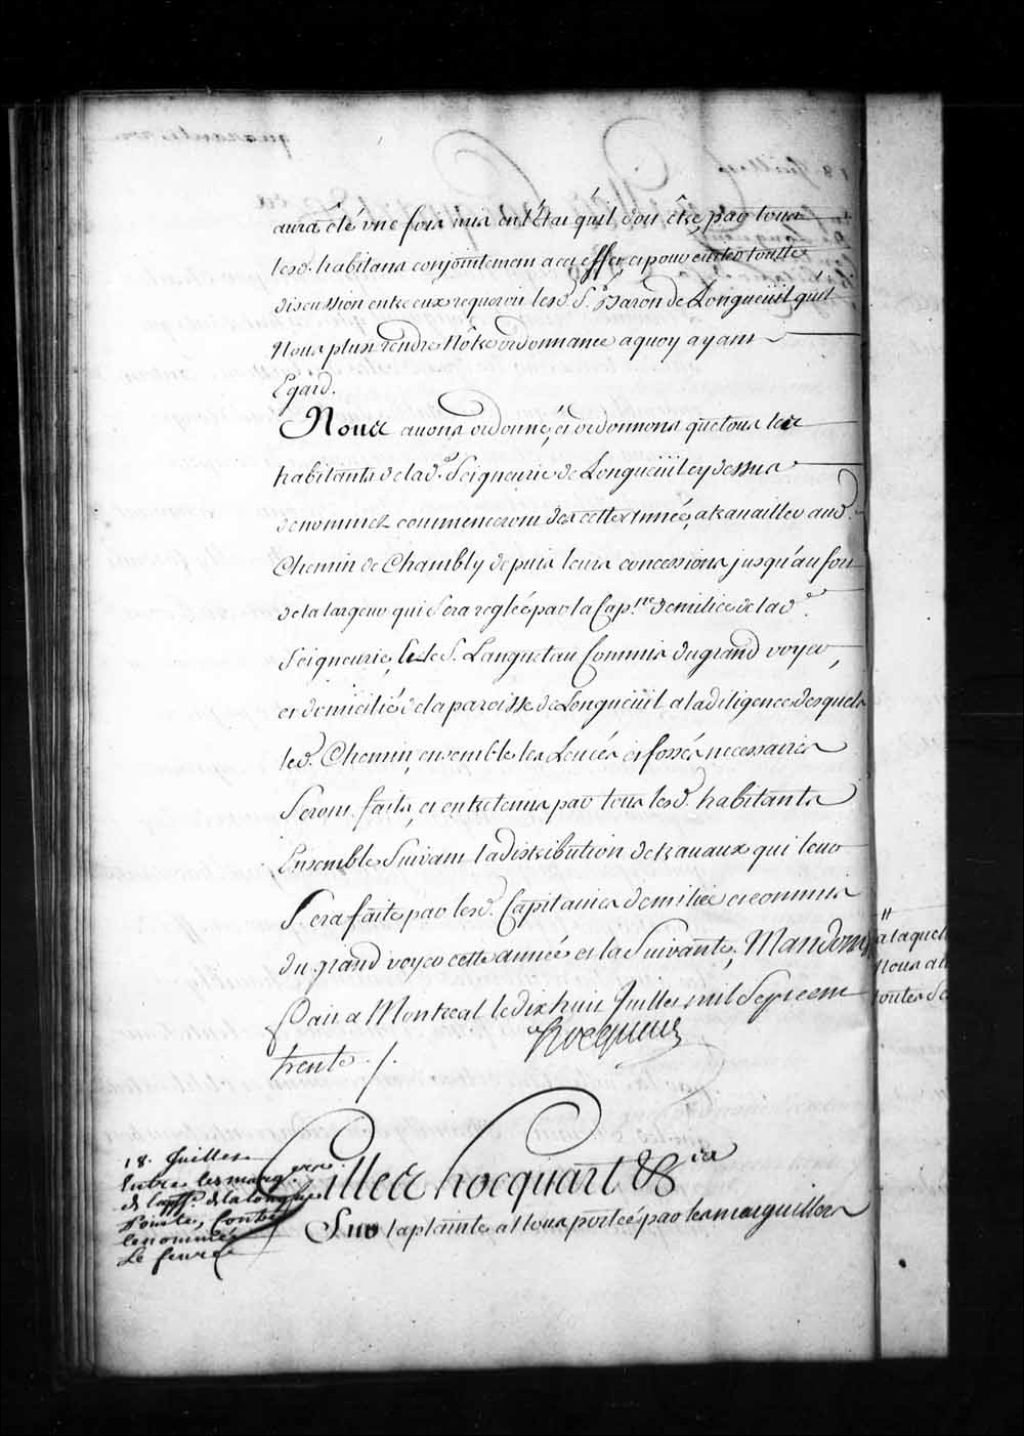 aura été une fois mis en l'état qu'il doit être, par tous
lesd. habitans conjointement a cet effet et pour eviter toutte
discussion entre eux requeroit led. S. Baron de Longueüil qu'il
Nous plust rendre Nôtre ordonnance a quoy ayant
Egard.
Nous avons ordonné, et ordonnons que tous les
habitants de lad. Seigneurie de Longueüil cy dessus
denommez commenceront dez cette année, a travailler aud.
Chemin de Chambly depuis leurs concessions jusqu'au fort
de la largeur qui Sera reglée par la Cap.ne de milice de lad.e
Seigneurie, le S. Languetau Commis du grand voyer,
et domicilié de la paroisse de Longueüil a la diligence desquels
led. Chemin, ensemble les Levées et fossés necessaires
Seront faits, et entretenus par tous lesd. habitants
Ensemble Suivant la distribution de travaux qui leur
Sera faite par lesd. Capitaines de milice et commis
du grand voyer cette année et la Suivante; Mandons
Fait a Montreal le dix huit Juillet mil Sept cent
trente ./.
Hocquart
18. Juillet
Entre les marg.ers
de la ff.e de la longue
Pointe, Contre
le nommé
Le feuvre
Gilles hocquart &c
Sur la plainte a Nous portée par les marguilliers
a laquel
Nous a
toutes